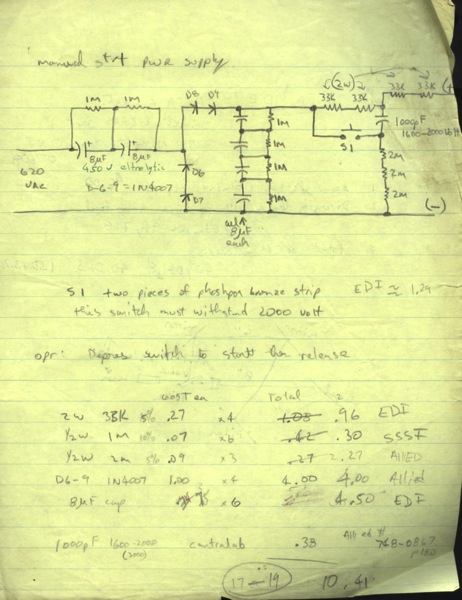 manual start pwr supply
D8 D9
(2W)
33K 33K 33K 33K (+)
1M 1M
8µF 8µF
450V eltrolytic
620
VAC
D-6-9 = 1N4007
D6
D7
1M
1M
1M
1M
all
8µF
each
S1
1000pF
1600-2000 Volt
2m
2m
2m
(-)
S1 two pieces of phoshpor bronze strip EDI ≈ 1.29
this switch must withstand 2000 volt
opr: Depress switch to start then release
cost ea Total
2W 33K 5% .27 x4 1.08 .96 EDI
1/2W 1M 10% .07 x6 .42 .30 SSSF
1/2W 2m 5% .09 x3 .27 2.27 Allied
D6-9 1N4007 1.00 x4 4.00 4.00 Allied
8µF cap 75 x6 4.50 EDI
1000pF 1600-2000 centralab .38 Allied # 748-0867
(2000)
17-19 10.41